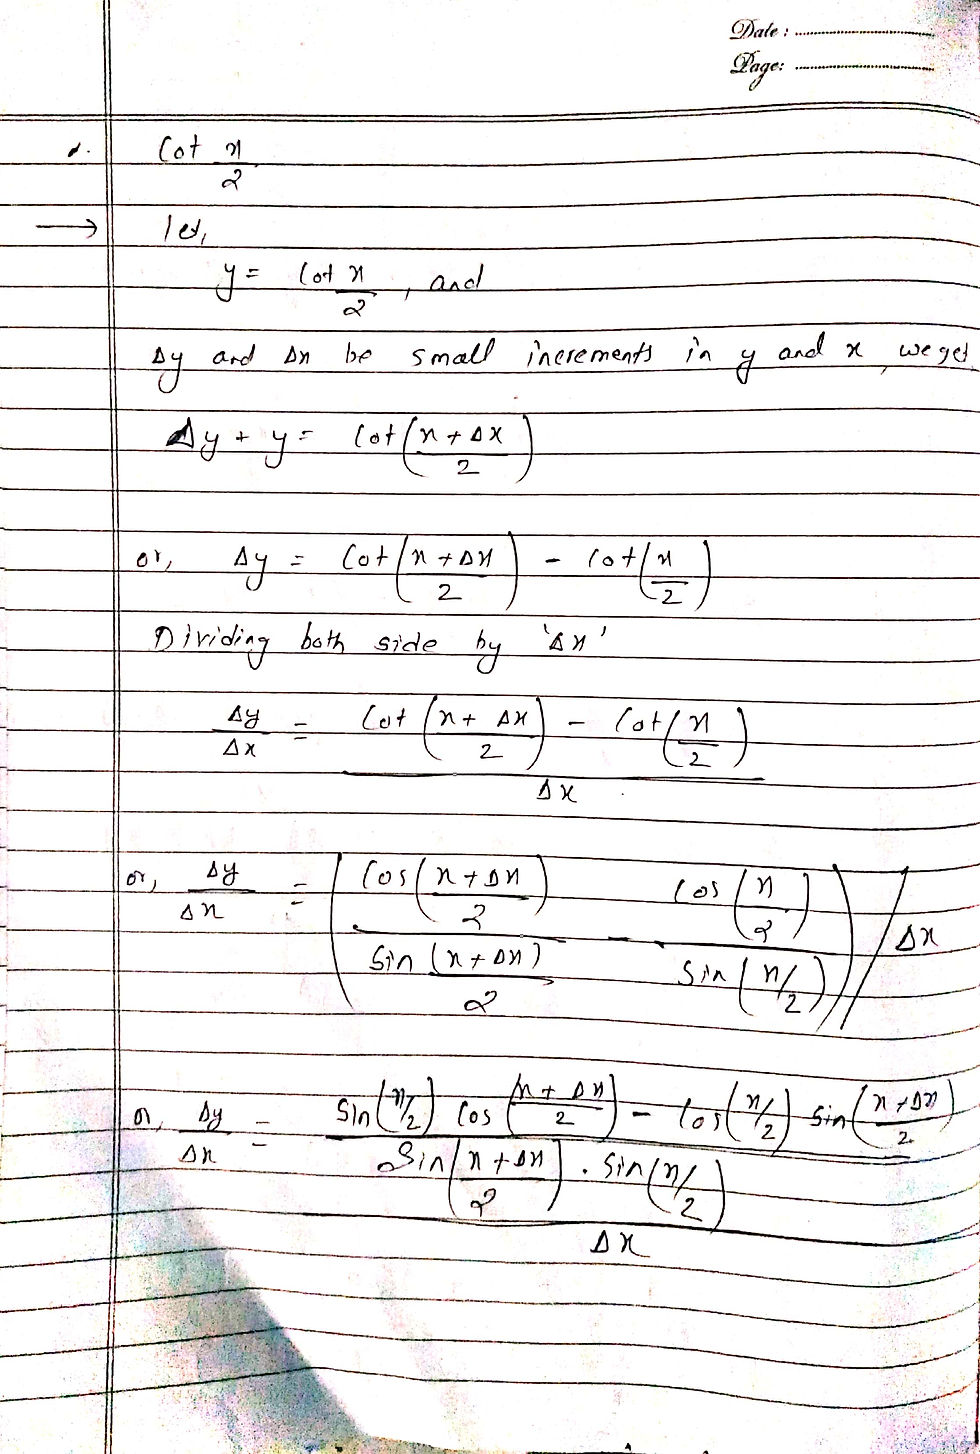 Date : ....................
Page: ....................
Cot x/2
→ let,
y = Cot x/2 , and
Δy and Δx be small increments in y and x, we get
Δy + y = Cot((x + Δx)/2)
or, Δy = Cot((x + Δx)/2) - Cot(x/2)
Dividing both side by 'Δx'
Δy/Δx = (Cot((x + Δx)/2) - Cot(x/2))/Δx
or, Δy/Δx = (Cos((x + Δx)/2)/Sin((x + Δx)/2) - Cos(x/2)/Sin(x/2))/Δx
or, Δy/Δx = ((Sin(x/2) Cos((x + Δx)/2) - Cos(x/2) Sin((x + Δx)/2))/(Sin((x + Δx)/2) . Sin(x/2)))/Δx